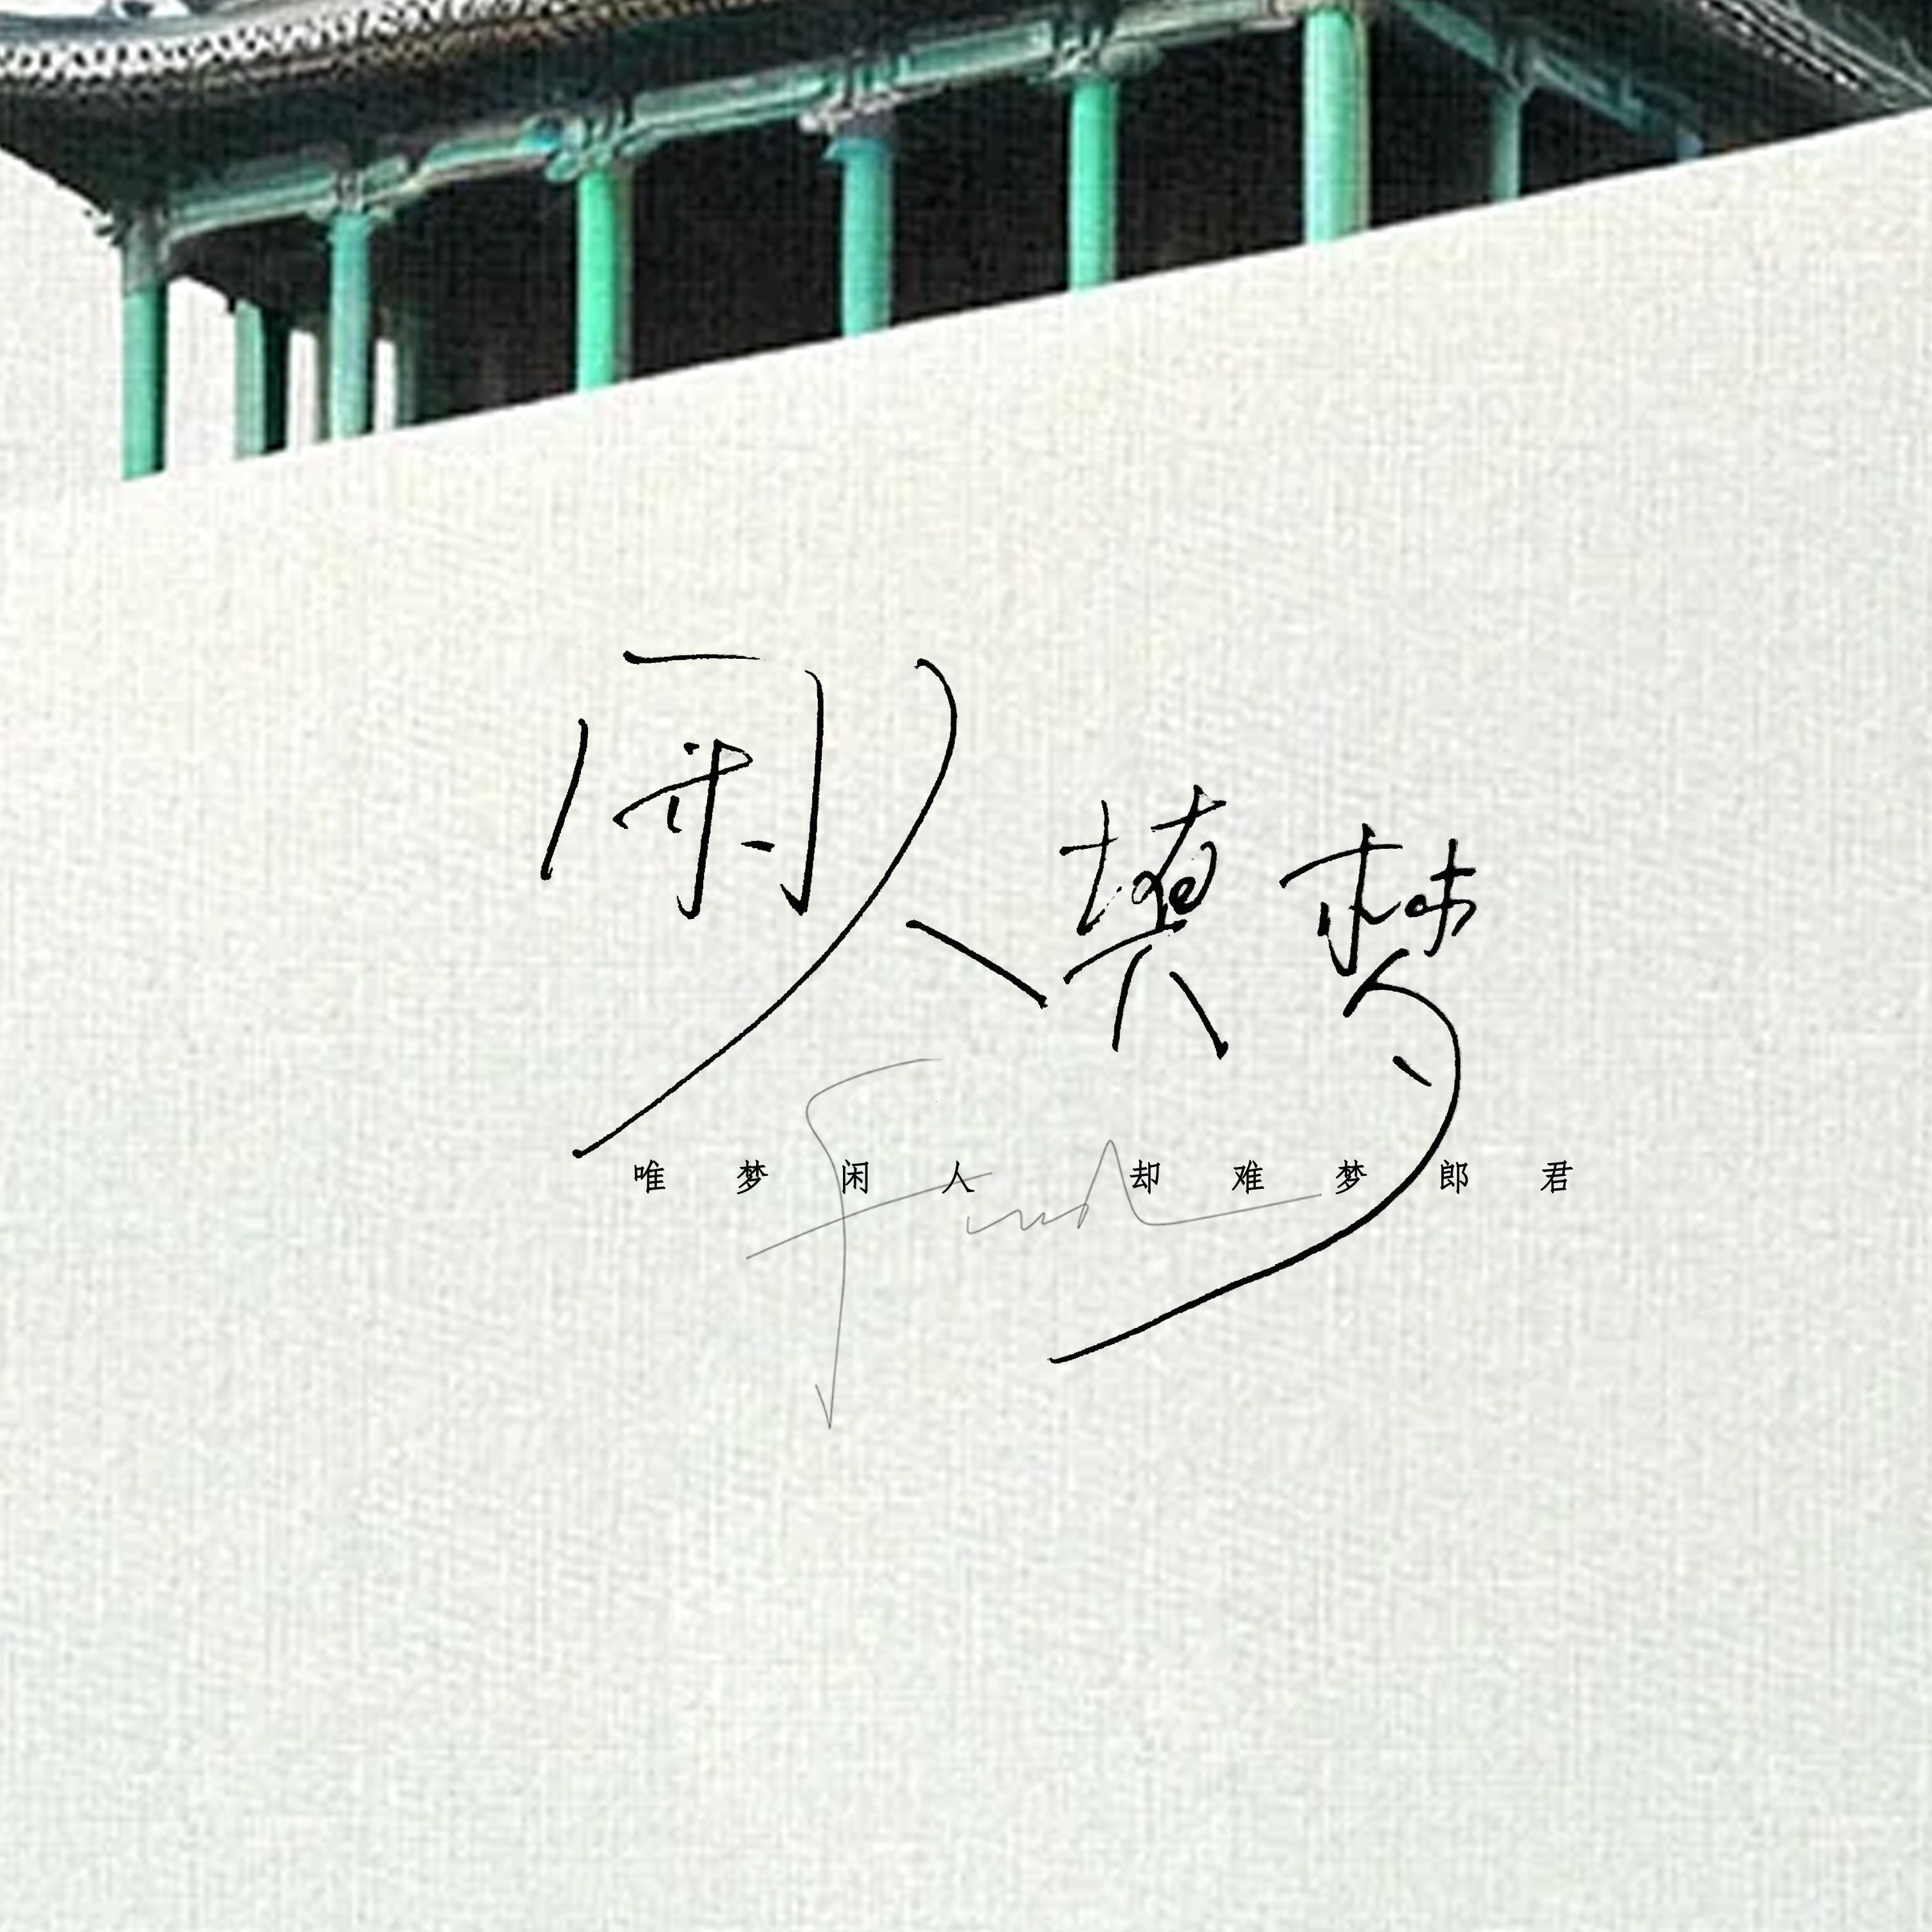 闲人填梦
唯梦闲人 却难梦郎君